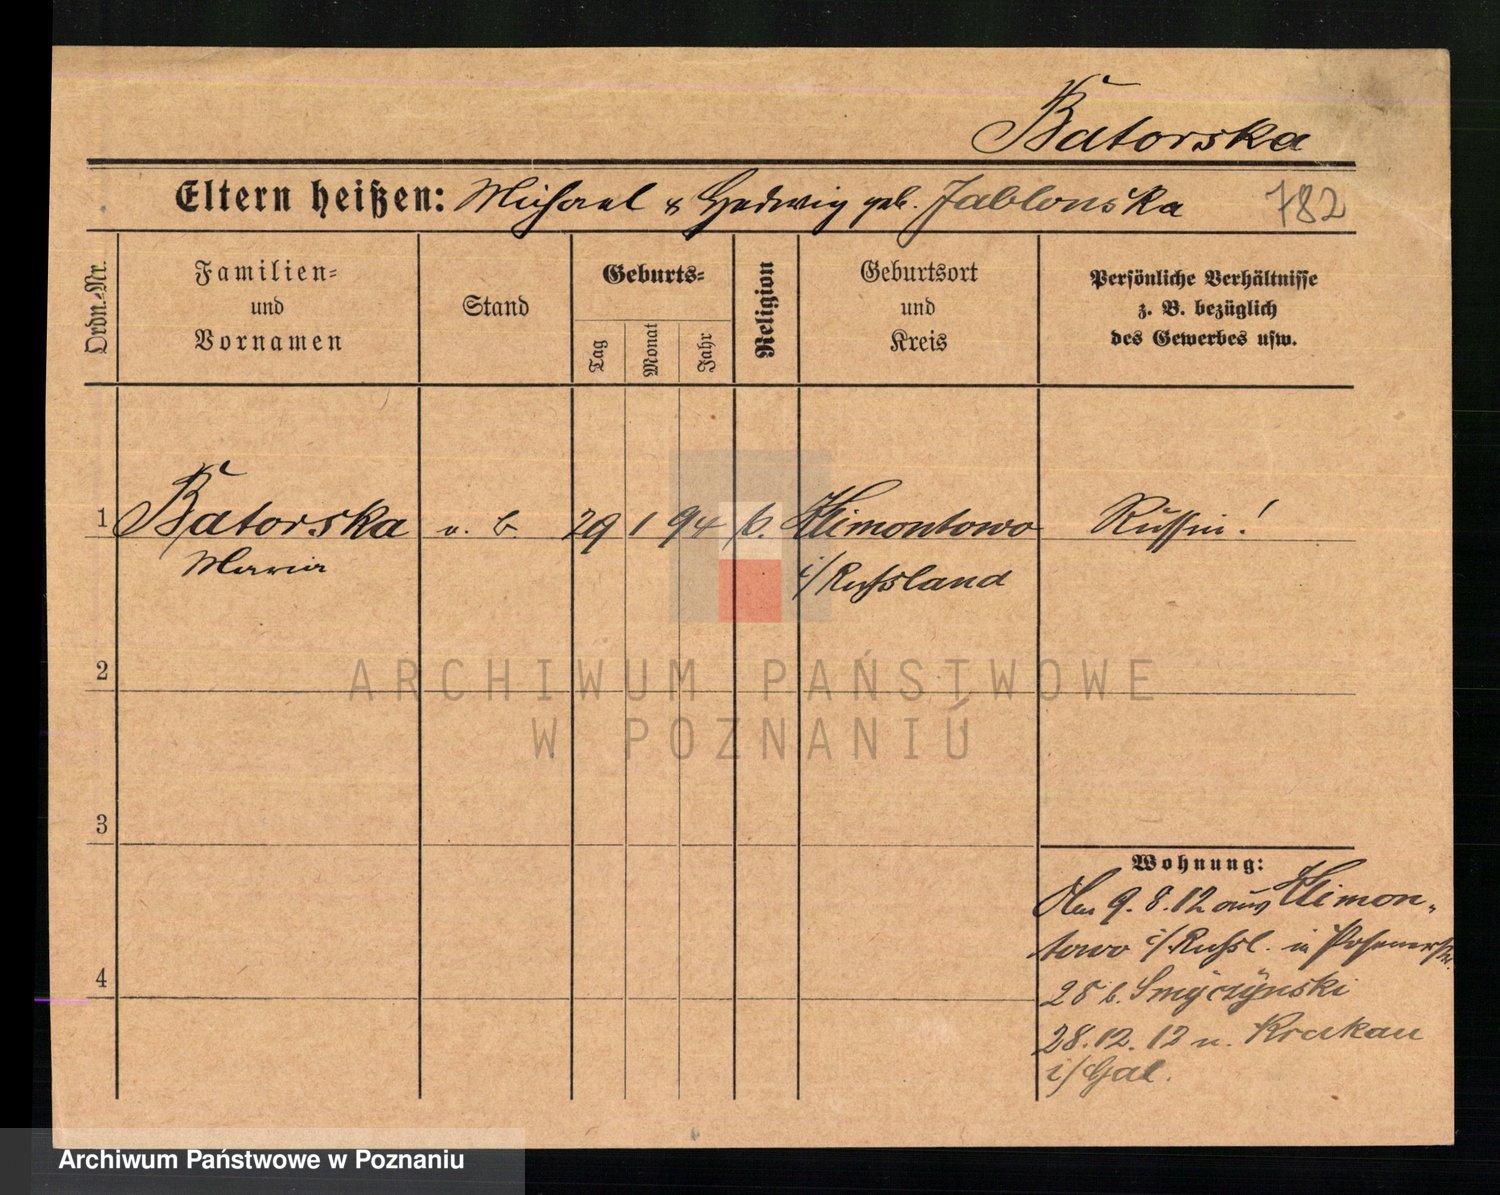 Batorska
Eltern heißen: Michael & Hedwig geb. Jablonska 782
Ordn.-Nr.
Familien-
und
Vornamen
Stand
Geburts-
Tag
Monat
Jahr
Religion
Geburtsort
und
Kreis
Persönliche Verhältnisse
z. B. bezüglich
des Gewerbes usw.
1 Batorska o. B. 29 1 94 k. Klimontowo Russin!
Maria i/Russland
2
ARCHIWUM PAŃSTWOWE
W POZNANIU
3
Wohnung:
Am 9.8.12 aus Klimon-
towo i/Russl. in Posenerstr.
28 b. Smyczynski
4
28.12.12 n. Krakau
i/Gal.
Archiwum Państwowe w Poznaniu